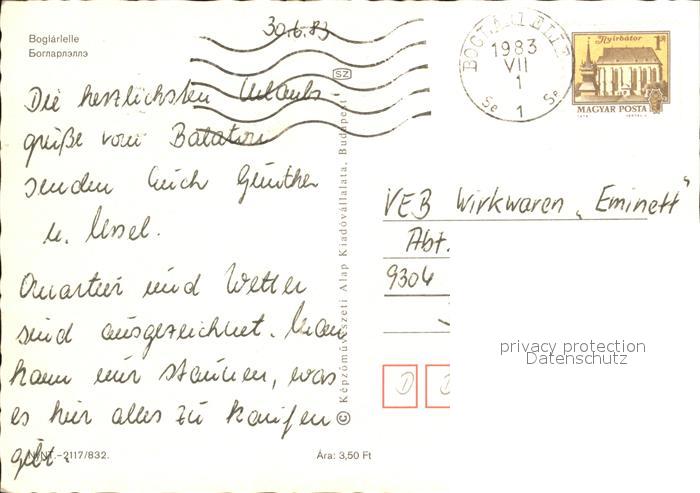 Boglárlelle
Богларлэллэ
30.6.83
Die herzlichsten Urlaubs-
grüße vom Balaton
senden Euch Günther
u. Ursel.
Quartier und Wetter
sind ausgezeichnet. Man
kann nur staunen, was
es hier alles zu kaufen
gibt.
-2117/832.
Ára: 3,50 Ft
SZ
© Képzőművészeti Alap Kiadóvállalata, Budapest
BOGLÁRLELLE
1983
VII
1
Se Se
1
Nyirbátor
1 Ft
MAGYAR POSTA
VEB Wirkwaren „Eminett"
Abt.
9304
D D
privacy protection
Datenschutz